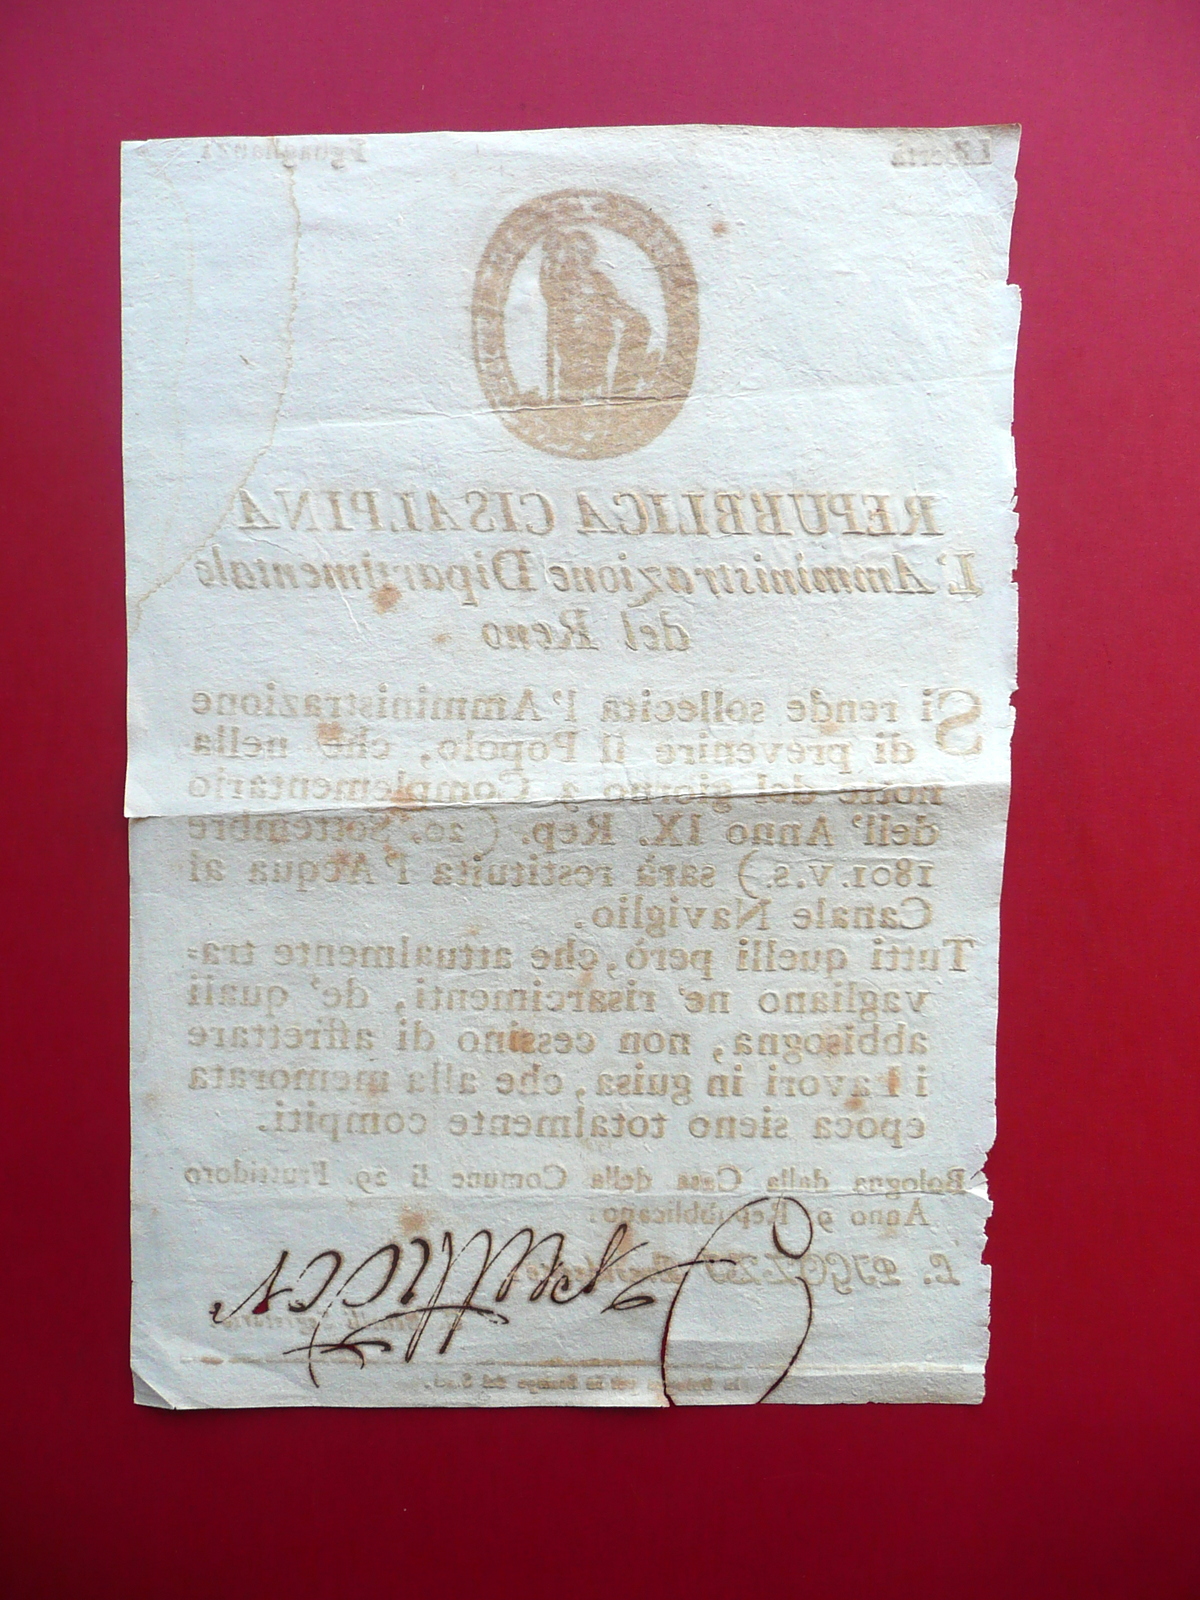 Libertà Eguaglianza
REPUBBLICA CISALPINA
L'Amministrazione Dipartimentale
del Reno
Si rende sollecita l'Amministrazione
di prevenire il Popolo, che nella
notte del giorno 3 Complementario
dell' Anno IX. Rep. (20. Settembre
1801. v.s.) sarà restituita l'Acqua al
Canale Naviglio.
Tutti quelli però, che attualmente tra-
vagliano ne' risarcimenti, de' quali
abbisogna, non cessino di affrettare
i Lavori in guisa, che alla memorata
epoca sieno totalmente compiti.
Bologna dalla Casa della Comune li 29. Fruttidoro
Anno 9 Repubblicano:
L. PIGOZZI
Segretario